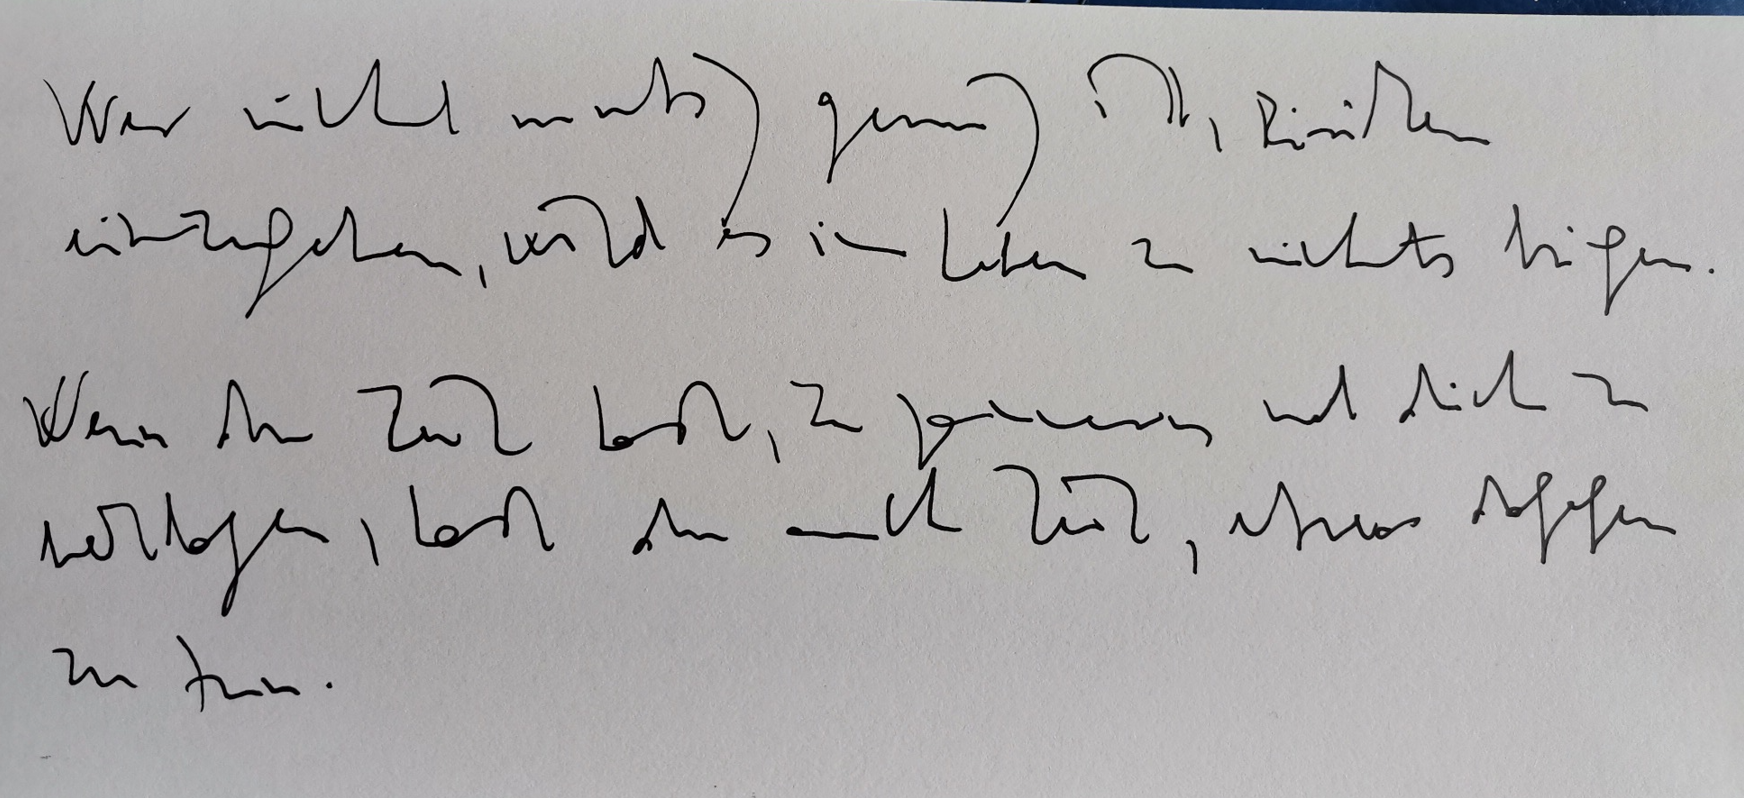 Wer nicht mutig genug ist, Risiken
einzugehen, wird es im Leben zu nichts bringen.
Wenn du Zeit hast, zu jammern und dich zu
beklagen, hast du auch Zeit, etwas dagegen
zu tun.